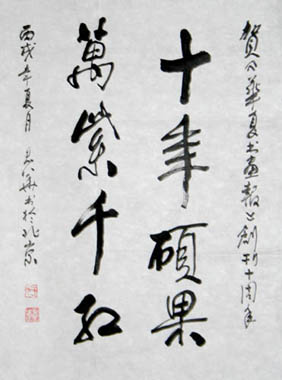 贺《华夏书画报》创刊十周年
十年硕果
萬紫千红
丙戌年夏月 书於北京